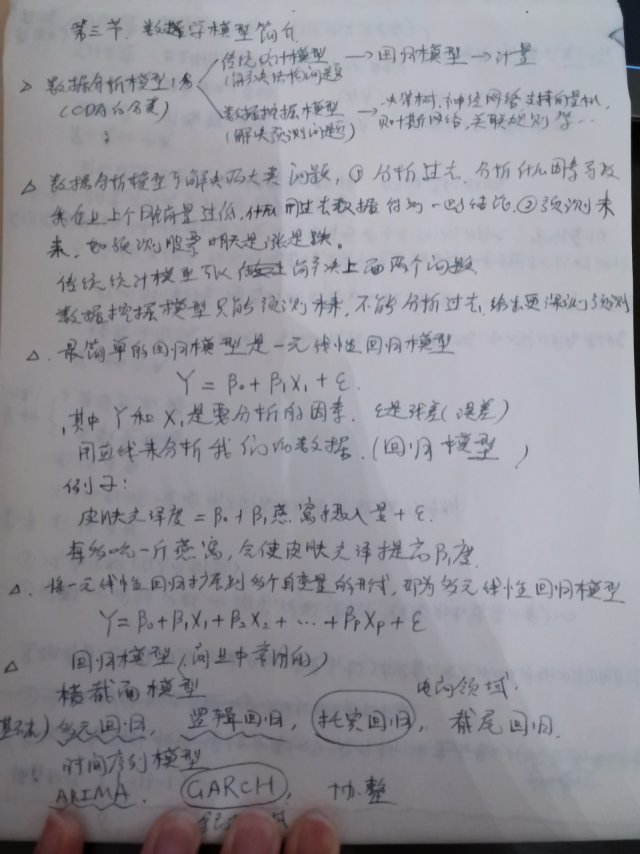 第三节、数据学模型简介
△ 数据分析模型分为
(CDA的分类)
传统统计模型 → 回归模型 → 计量
(解决结构问题
数据挖掘模型 → 决策树、神经网络、支持向量机,
(解决预测问题) 贝叶斯网络,关联规则 等…
△ 数据分析模型可解决两大类问题,① 分析过去,分析什么因素导致
企业上个月销量过低,用过去数据得到一些结论,② 预测未
来,如预测股票明天是涨是跌。
传统统计模型可以解决上面两个问题
数据挖掘模型只能预测未来,不能分析过去,给出更深测预测
△. 最简单的回归模型是一元线性回归模型
Y = β₀ + β₁X₁ + ε.
其中 Y和X₁是要分析的因素. ε是残差(误差)
用直线来分析我们的数据.(回归模型)
例子:
皮肤光泽度 = β₀ + β₁燕窝摄入量 + ε.
每多吃一斤燕窝,会使皮肤光泽提高β₁度.
△. 将一元线性回归扩展到多个自变量的形式,即为多元线性回归模型
Y = β₀ + β₁X₁ + β₂X₂ + … + βpXp + ε
△ 回归模型(商业中常用的)
横截面模型 电商领域.
基础) 多元回归, 逻辑回归, 托宾回归, 截尾回归.
时间序列模型
ARIMA. GARCH, 协整